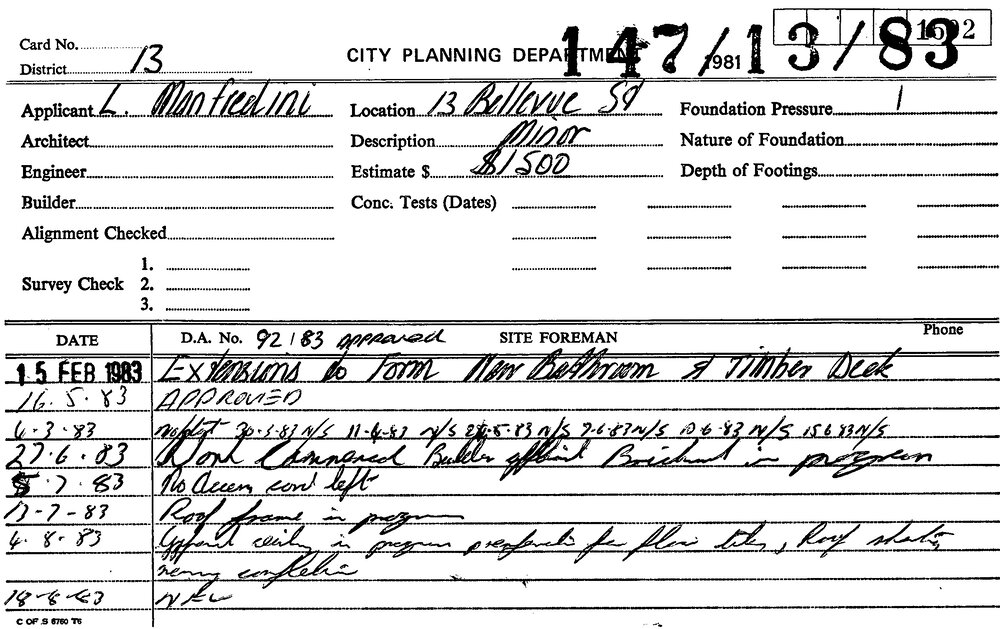 1502
147/13/83
Card No.
CITY PLANNING DEPARTMENT 1981
District 13
Applicant L. Manfredini Location 13 Bellevue St Foundation Pressure 1
Architect Description Minor Nature of Foundation
Engineer Estimate $ $1500 Depth of Footings
Builder Conc. Tests (Dates)
Alignment Checked
1.
Survey Check 2.
3.
DATE D.A. No. 92/83 APPROVED SITE FOREMAN Phone
15 FEB 1983 Extensions to Form New Bathroom & Timber Deck
16.5.83 APPROVED
4-3-83 30-3-83 N/S 11-4-83 N/S N/S 7-6-83 N/S 10-6-83 N/S 15 6 83 N/S
27.6.83 Work Commenced Brickwork in progress
5.7.83 No Access card left
13-7-83 Roof frame in progress
4.8.83 ceiling in progress for floor tiles, Roof
nearing completion
18-8-83
C OF S 6760 T6